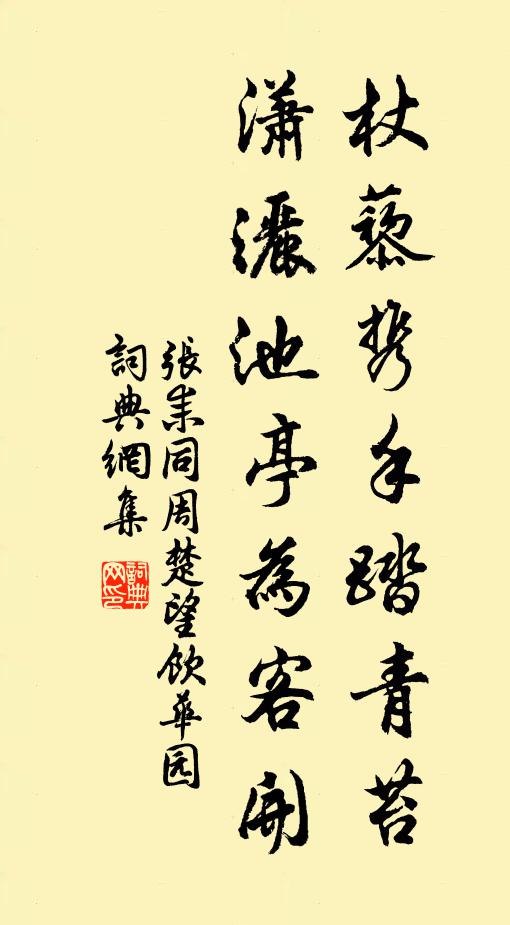 杖藜携手踏青苔
瀟灑池亭為客開
張耒同周楚望飲華园
詞典網集
詞典网印